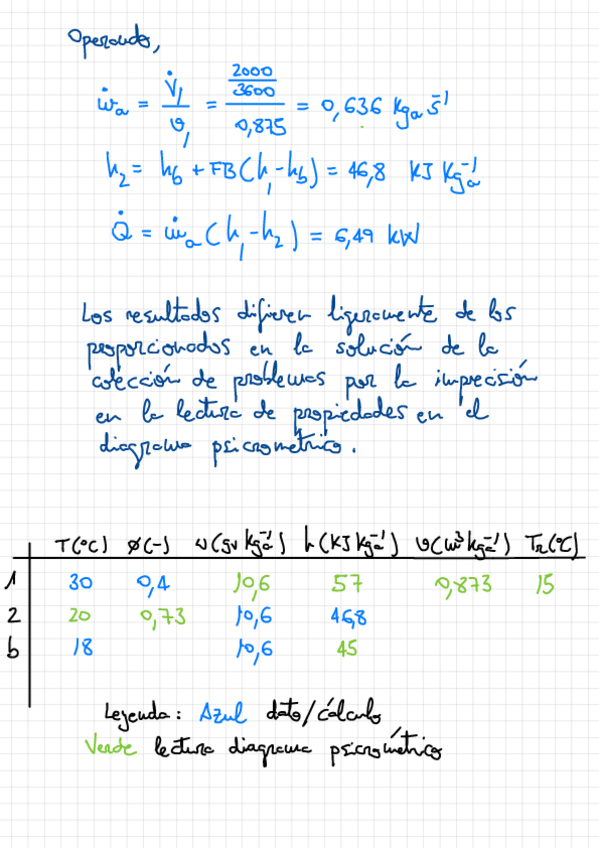 Operando,
ṁₐ = V̇₁ / ϑ₁ = (2000/3600) / 0,875 = 0,636 kgₐ s⁻¹
h₂ = h_b + FB(h₁ - h_b) = 46,8 KJ Kgₐ⁻¹
Q̇ = ṁₐ(h₁ - h₂) = 6,49 kW
Los resultados difieren ligeramente de los
proporcionados en la solución de la
colección de problemas por la imprecisión
en la lectura de propiedades en el
diagrama psicrométrico.
T(ºC) ø(-) w(gv kgₐ⁻¹) h(KJ kgₐ⁻¹) ϑ(m³ kgₐ⁻¹) T_R(ºC)
1 30 0,4 10,6 57 0,873 15
2 20 0,73 10,6 46,8
b 18 10,6 45
Leyenda: Azul dato/cálculo
Verde lectura diagrama psicrométrico